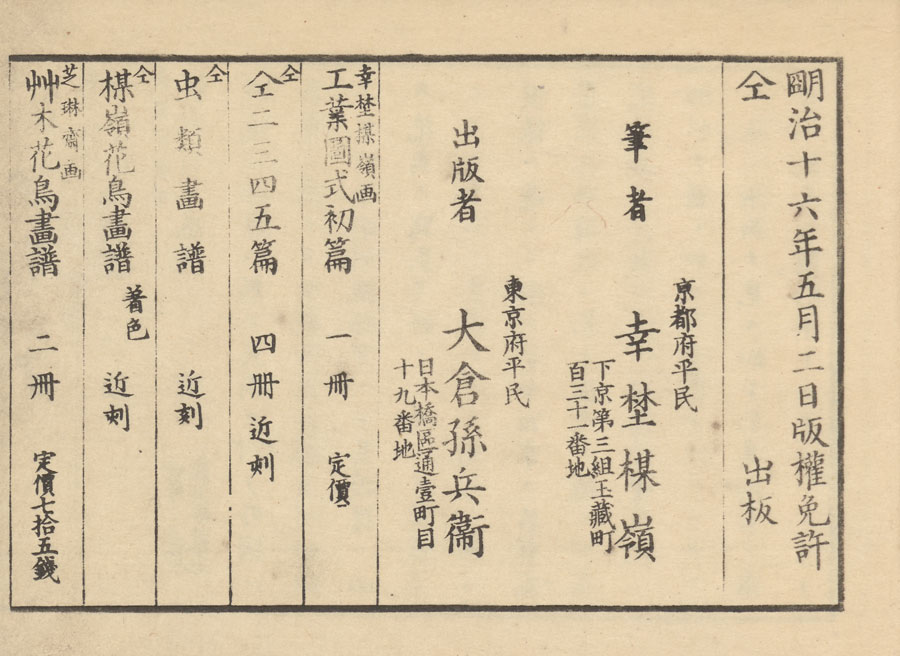 明治十六年五月二日版權免許
仝 出板
京都府平民
筆者 幸埜楳嶺
下京第三組玉藏町
百三十一番地
東京府平民
出版者 大倉孫兵衞
日本橋區通壹町目
十九番地
幸埜楳嶺画
工業圖式初篇 一冊 定價
仝
仝二三四五篇 四冊近刻
仝
虫類畫譜 近刻
仝
楳嶺花鳥畫譜 着色 近刻
芝琳齋画
艸木花鳥畫譜 二冊 定價七拾五錢